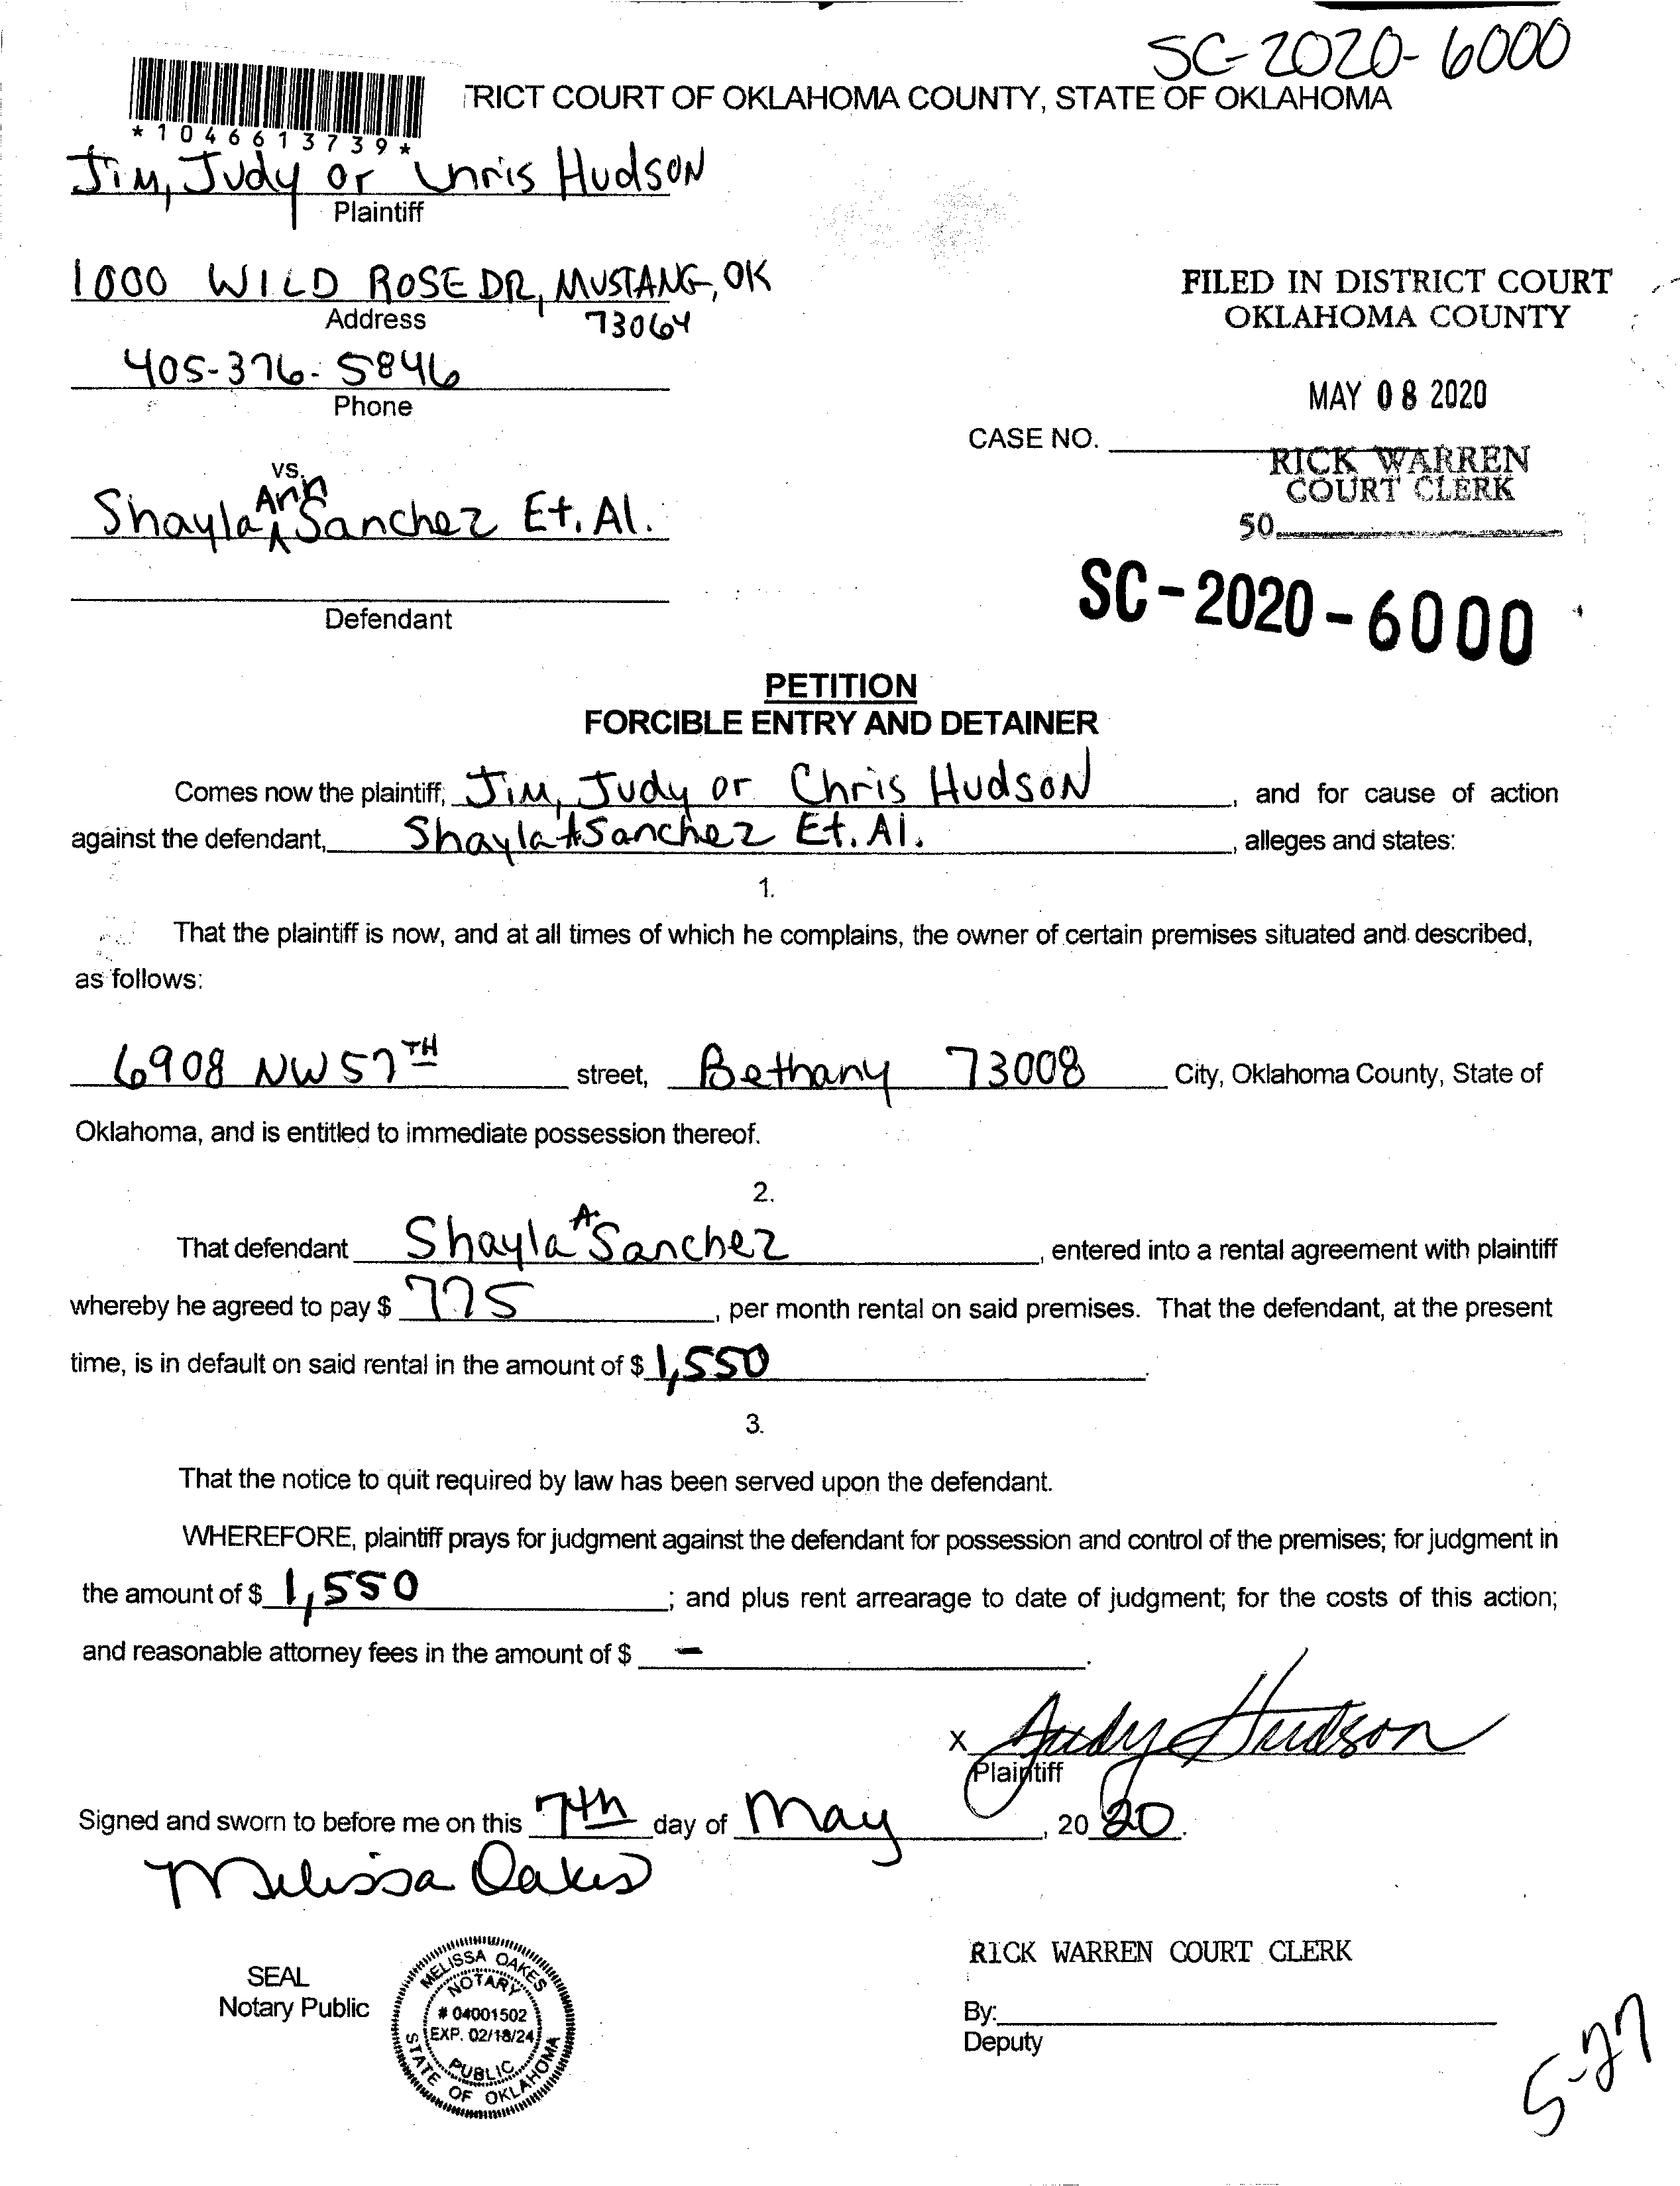 SC-2020-6000
TRICT COURT OF OKLAHOMA COUNTY, STATE OF OKLAHOMA
*1046613739*
Jim, Judy or Chris Hudson
Plaintiff
1000 WILD ROSE DR, MUSTANG, OK
Address 73064
405-376-5846
Phone
FILED IN DISTRICT COURT
OKLAHOMA COUNTY
MAY 08 2020
CASE NO.
RICK WARREN
COURT CLERK
50
vs.
Shayla Ann Sanchez Et. Al.
Defendant
SC-2020-6000
PETITION
FORCIBLE ENTRY AND DETAINER
Comes now the plaintiff, Jim, Judy or Chris Hudson, and for cause of action
against the defendant, Shayla A Sanchez Et. Al., alleges and states:
1.
That the plaintiff is now, and at all times of which he complains, the owner of certain premises situated and described,
as follows:
6908 NW 57TH street, Bethany 73008 City, Oklahoma County, State of
Oklahoma, and is entitled to immediate possession thereof.
2.
That defendant Shayla A Sanchez, entered into a rental agreement with plaintiff
whereby he agreed to pay $ 775, per month rental on said premises. That the defendant, at the present
time, is in default on said rental in the amount of $ 1,550.
3.
That the notice to quit required by law has been served upon the defendant.
WHEREFORE, plaintiff prays for judgment against the defendant for possession and control of the premises; for judgment in
the amount of $ 1,550; and plus rent arrearage to date of judgment; for the costs of this action;
and reasonable attorney fees in the amount of $ –.
x Judy Hudson
Plaintiff
Signed and sworn to before me on this 7th day of May, 2020.
Melissa Oakes
SEAL
Notary Public
MELISSA OAKES
NOTARY
# 04001502
EXP. 02/18/24
PUBLIC
STATE OF OKLAHOMA
RICK WARREN COURT CLERK
By:
Deputy
5-27